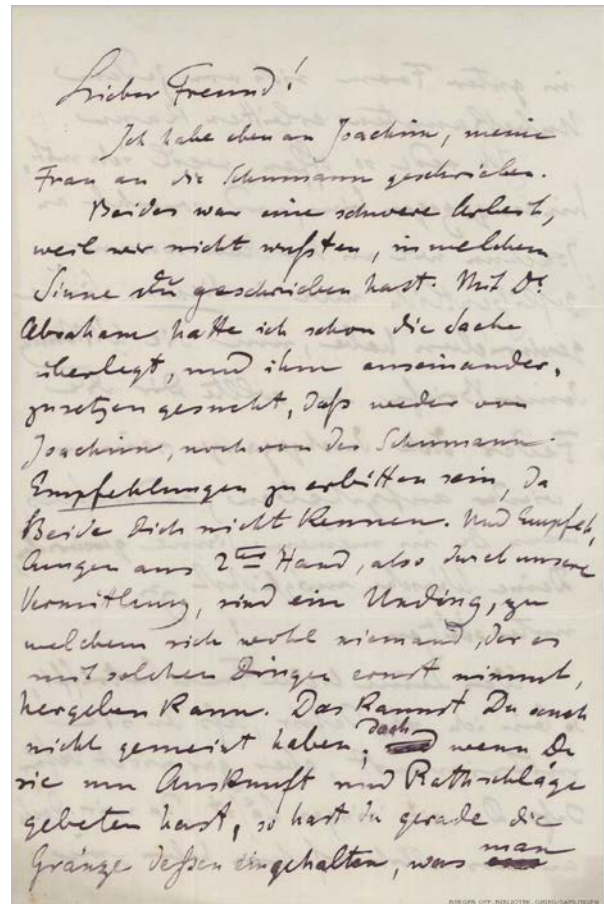 Lieber Freund!
Ich habe eben an Joachim, meine
Frau an die Schumann geschrieben.
Beides war eine schwere Arbeit,
weil wir nicht wußten, in welchem
Sinne Du geschrieben hast. Mit Dr
Abraham hatte ich schon die Sache
überlegt, und ihm auseinander-
zusetzen gesucht, daß weder von
Joachim, noch von der Schumann
Empfehlungen zu erbitten sein, da
Beide Dich nicht kennen. Und Empfeh-
lungen aus 2ter Hand, also durch unsere
Vermittlung, sind ein Unding, zu
welchem sich wohl niemand, der es
mit solchen Dingen ernst nimmt,
hergeben kann. Das kannst Du auch
nicht gemeint haben; doch wenn Du
sie um Auskunft und Rathschläge
gebeten hast, so hast Du gerade die
Gränze dessen eingehalten, was man
BERGEN OFF. BIBLIOTEK. GRIEG-SAMLINGEN